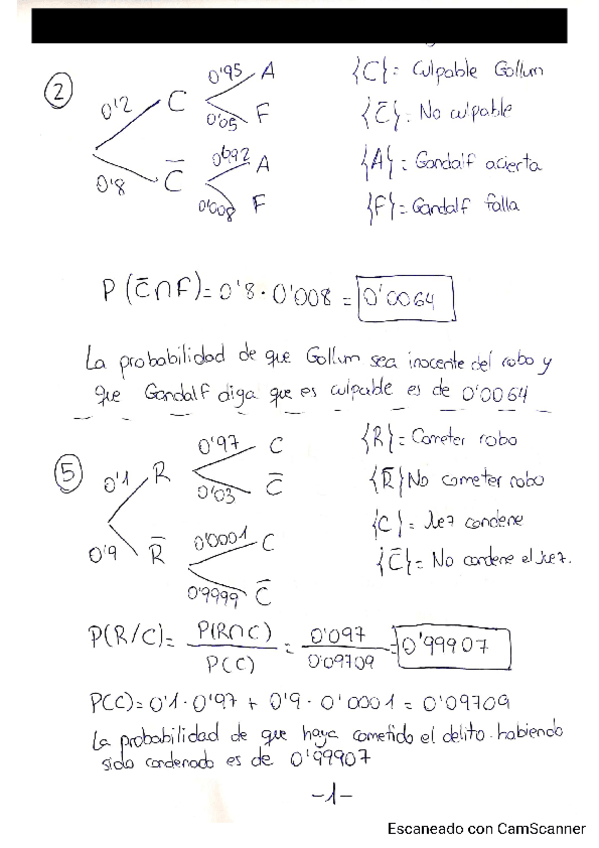 2
0'2 C 0'95 A
0'05 F
0'8 C̄ 0'992 A
0'008 F
{C}= Culpable Gollum
{C̄}: No culpable
{A}= Gandalf acierta
{F}= Gandalf falla
P (C̄∩F)= 0'8 · 0'008 = 0'0064
La probabilidad de que Gollum sea inocente del robo y
que Gandalf diga que es culpable es de 0'0064
5
0'1 R 0'97 C
0'03 C̄
0'9 R̄ 0'0001 C
0'9999 C̄
{R}= Cometer robo
{R̄} No cometer robo
{C}= Juez condene
{C̄}= No condene el Juez.
P(R/C)= P(R∩C) / P(C) = 0'097 / 0'09709 = 0'99907
P(C)= 0'1 · 0'97 + 0'9 · 0'0001 = 0'09709
La probabilidad de que haya cometido el delito habiendo
sido condenado es de 0'99907
-1-
Escaneado con CamScanner